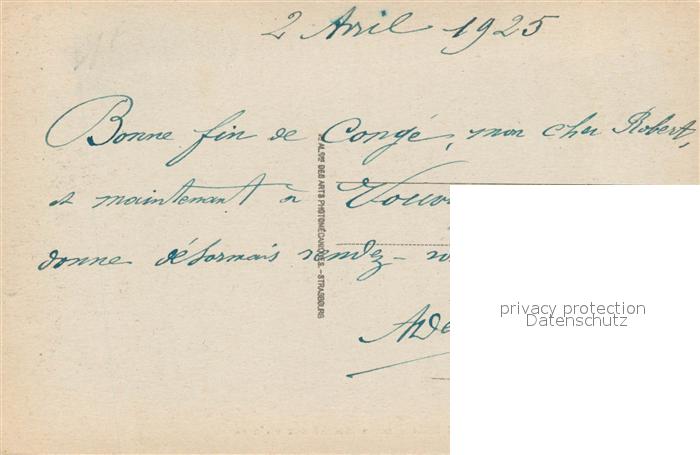 2 Avril 1925
Bonne fin de Congé, mon cher Robert,
et maintenant à
donne désormais rendez-
Sté ALSNE DES ARTS PHOTOMÉCANIQUES. - STRASBOURG
privacy protection
Datenschutz